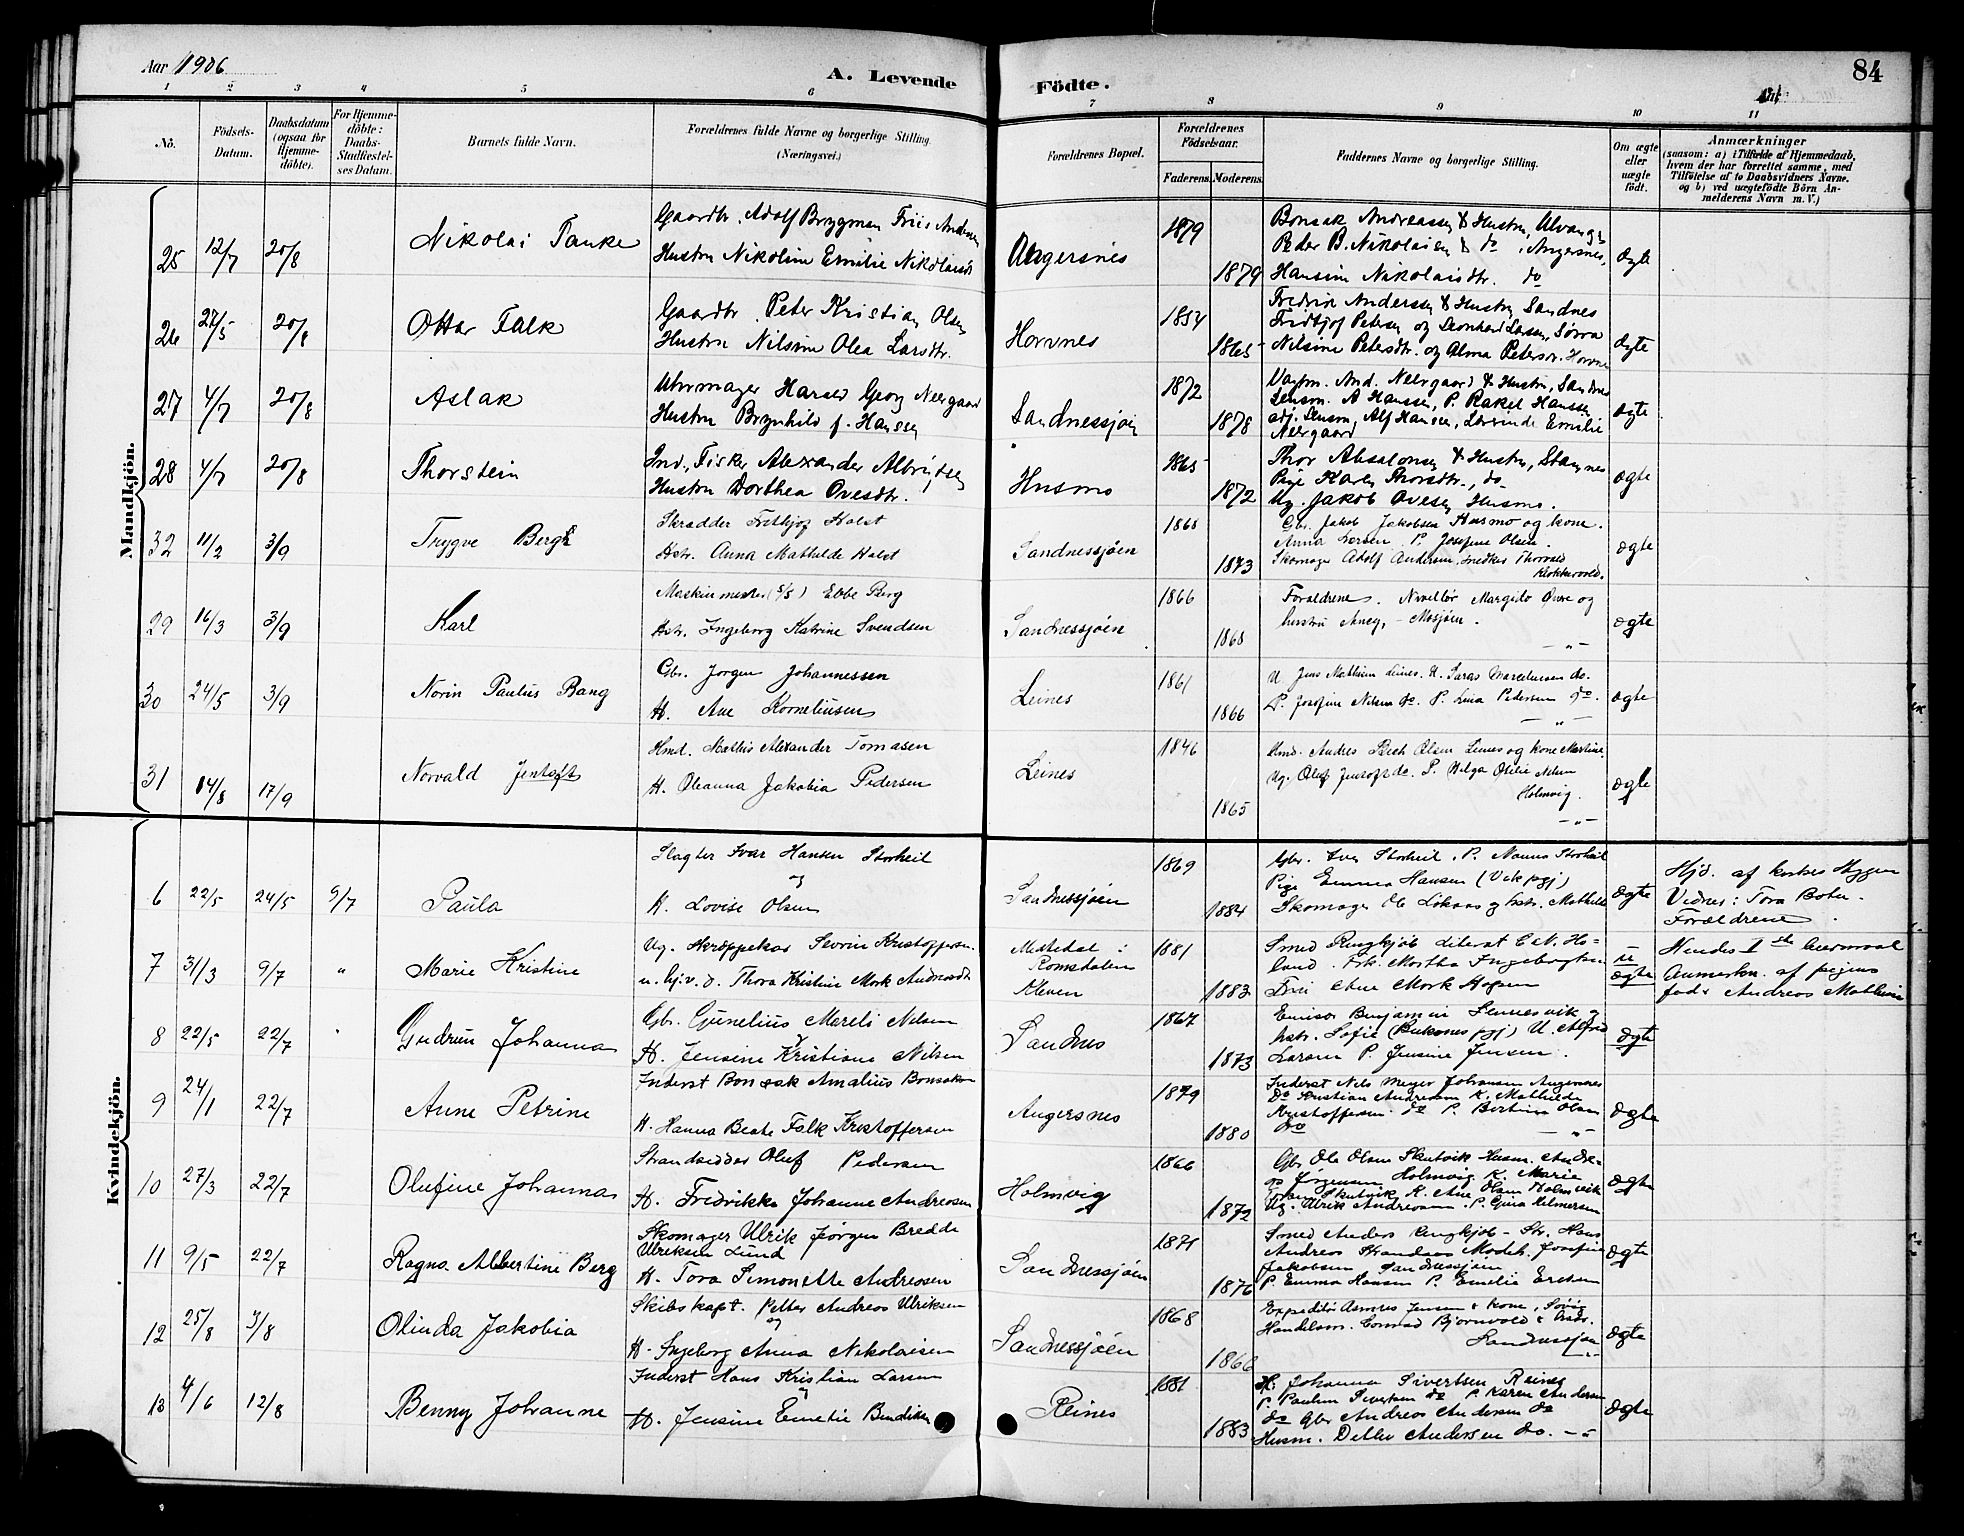 Aar 1906
A. Levende Födte.
84
1 2 3 4 5 6 7 8 9 10 11
Nô.
Födsels-Datum.
Daabsdatum (ogsaa for Hjemme-döbte).
For Hjemme-döbte: Daabs-Stadfæstel-ses Datum.
Barnets fulde Navn.
Forældrenes fulde Navne og borgerlige Stilling.
(Næringsvei.)
Forældrenes Bopæl.
Forældrenes Födselsaar.
Faderens. Moderens.
Faddernes Navne og borgerlige Stilling.
Om ægte eller uægte födt.
Anmærkninger
(saasom: a) i Tilfælde af Hjemmedaab,
hvem der har forrettet samme, med
Tilföielse af to Daabsvidners Navne.
og b) ved uægtefödte Börn An-
melderens Navn m. V.)
Mandkjön.
25 12/7 20/8 Nikolai Tanke
Gaardbr. Adolf Brygman Friis Andersen
Hustru Nikoline Emilie Nikolaisdtr
Angersnes 1879 1879
Bonsak Andreassen & Hustru, Ulvangs
Peder B. Nikolaisen & do, Angersnes,
Hansine Nikolaisdtr. do
ægte
26 27/5 20/8 Ottar Falk
Gaardbr. Peter Kristian Olsen
Hustru Nilsine Olea Larsdtr.
Horvnes 1854 1865
Fredrik Anderssen & Hustru Sandnes
Fridtjof Petersen og Leonhard Larssen, Sørra
Nilsine Petersdtr. og Alma Petersdr. Horvnes
ægte
27 4/7 20/8 Aslak
Uhrmager Harald Georg Neergaard
Hustru Brynhild f. Hansen
Sandnessjöen 1872 1878
And. Neergaard & Hustru, Sandnes
Lensm. A Hanssen, P. Rakel Hanssen,
adj. Lensm, Alf Hansen, Emilie
Neergaard
ægte
28 4/7 20/8 Thorstein
Ind., Fisker Alexander Albrigtsen
Hustru Dorthea Ovesdtr.
Husmo 1865 1872
Thor Absalonsen & Hustru, Stamnes
Pige Karen Thorsdtr., do
Ug. Jakob Ovesen Husmo.
ægte
32 11/2 3/9 Trygve Bergh
Skrædder Frithjof Holst
Hstr. Anna Mathilde Holst
Sandnessjöen 1868 1873
Gbr. Jakob Jakobsen Husmo og kone.
Anna Larsen P. Josefine Olsen.
Skomager Adolf Andersen, snedker Thorvald
Klokkervold.
ægte
29 16/3 3/9 Karl
Maskinmester (s/s) Ebbe Berg
Hstr. Ingeborg Katrine Svendsen
Sandnessjöen 1866 1868
Forældrene. Margido Övre og
hustru Aneg, - Mosjöen.
- " -
ægte
30 24/5 3/9 Norin Paulus Bang
Gbr. Jörgen Johannessen
H. Ane Korneliusen
Leines 1861 1866
U. Jens Mathisen Leines. U. Lars Marcelinsen do.
P. Josefine Nilsen do. P. Lina Pedersen do.
- " -
ægte
31 14/8 17/9 Norvald Jentoft
Hmd. Mathis Alexander Tomasen
H. Oleanna Jakobia Pedersen
Leines 1846 1865
Hmd. Andres Bech Olsen Leines og kone Martine.
Ug. Oluf Jentoft do. P. Helga Otilie Nilsen
Holmvig.
- " -
ægte
Kvindekjön.
6 22/5 24/5 9/7 Paula
Slagter Ivar Hansen Storheil
og
H. Lovise Olsen
Sandnessjöen 1869 1884
Gbr. Iver Storheil. P. Nanna Storheil
Pige Emma Hansen (Vik pgj)
Skomager Ole Lökaas og hstr. Mathilde
ægte
Hjd. af Hyggen
Vidner: Tora Boten.
Forældrene.
7 31/3 9/7 " Marie Kristine
Ug. Skræppekar Sevrin Kristoffersen.
Thora Kristine Mork Andreasdtr
Romsdalen
Kleven
1881 1883
Smed Ringkjöb
Frk. Martha Ingebrigtsen
Frui Ane Mork Hagen
u
ægte
af pigens
fader Andreas Mathisen
8 22/5 22/7 " Gudrun Johanna
Gbr. Gunelius Mareli Nilsen
og
H. Jensine Kristiane Nilsen
Sandnes 1867 1873
Emisær Benjamin Sennesvik og
hstr. Sofie (Buksnes pgj) U. Alfred
Larsen P. Jensine Jensen.
ægte
9 24/1 22/7 Anne Petrine
Inderst Bonsak Amalius Bonsaksen
H. Hanna Beate Falk Kristoffersen
Angersnes 1879 1880
Inderst Nils Meyer Johansen Angersnes
Do Kristian Andreasen K. Mathilde
Kristoffersen. do P. Bertina Olsen
do - " -
ægte
10 27/3 22/7 Olufine Johanna
Strandsidder Oluf Pedersen
H. Fredrikke Johanne Andreasen
Holmvig 1866 1872
Gbr. Ole Olsen Skutvik Husm.
Jörgensen Holmvig K. Marie
Skutvik K. Ane Olsen Holmvik
Ug. Ulrik Andreasen. P. Gina Hilmersen
ægte
11 9/5 22/7 Ragna Albertine Berg
Skomager Ulrik Jörgen Bredde
Ulriksen Lund
H. Tora Simonette Andreasen
Sandnessjöen 1871 1876
Smed Anders Ringkjöb - Str. Hans
Andreas Strandaas Modeh. Josefine
Jakobsen Sandnessjöen
P. Emma Hansen P. Emelie Ericsen
ægte
12 25/8 3/8 Olinda Jakobia
Skibskapt. Petter Andreas Ulriksen
og
H. Ingeborg Anna Nikolaisen
Sandnessjöen 1868 1866
Expeditör Asmus Jensen & kone,
Handelsm. Conrad Bjornvold &
Sandnessjöen
- " -
ægte
13 4/6 12/8 Benny Johanne
Inderst Hans Kristian Larsen
"
H. Jensine Emelie Bendiksen
Reines 1881 1883
H. Johanna Sivertsen Reines
P. Pauline Sivertsen do P. Karen Andersen
do Gbr Andreas Andersen do
Husm. Detlev Andersen do. - " -
ægte